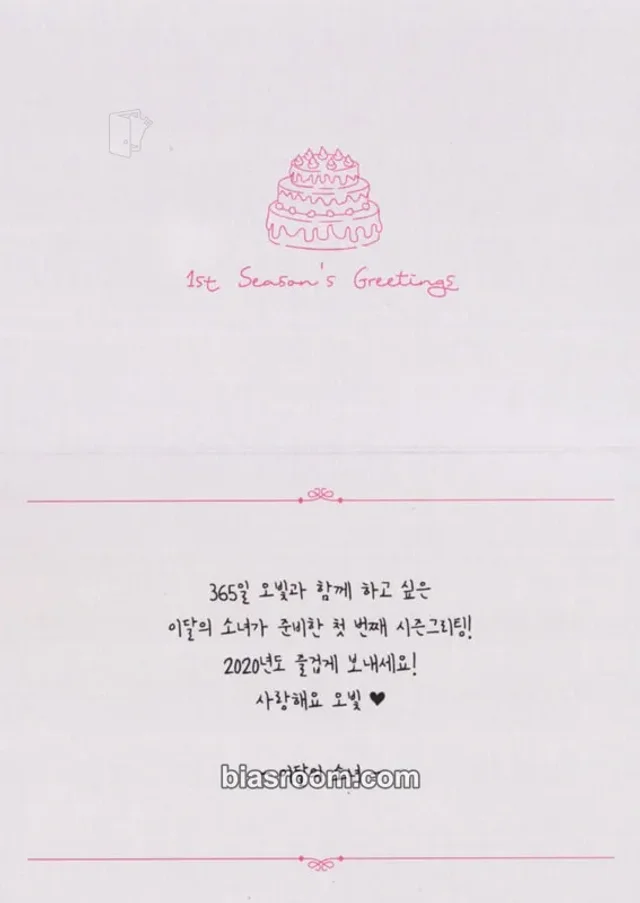 1st Season's Greetings
365일 오빛과 함께 하고 싶은
이달의 소녀가 준비한 첫 번째 시즌그리팅!
2020년도 즐겁게 보내세요!
사랑해요 오빛 ♥
- 이달의 소녀 -
biasroom.com